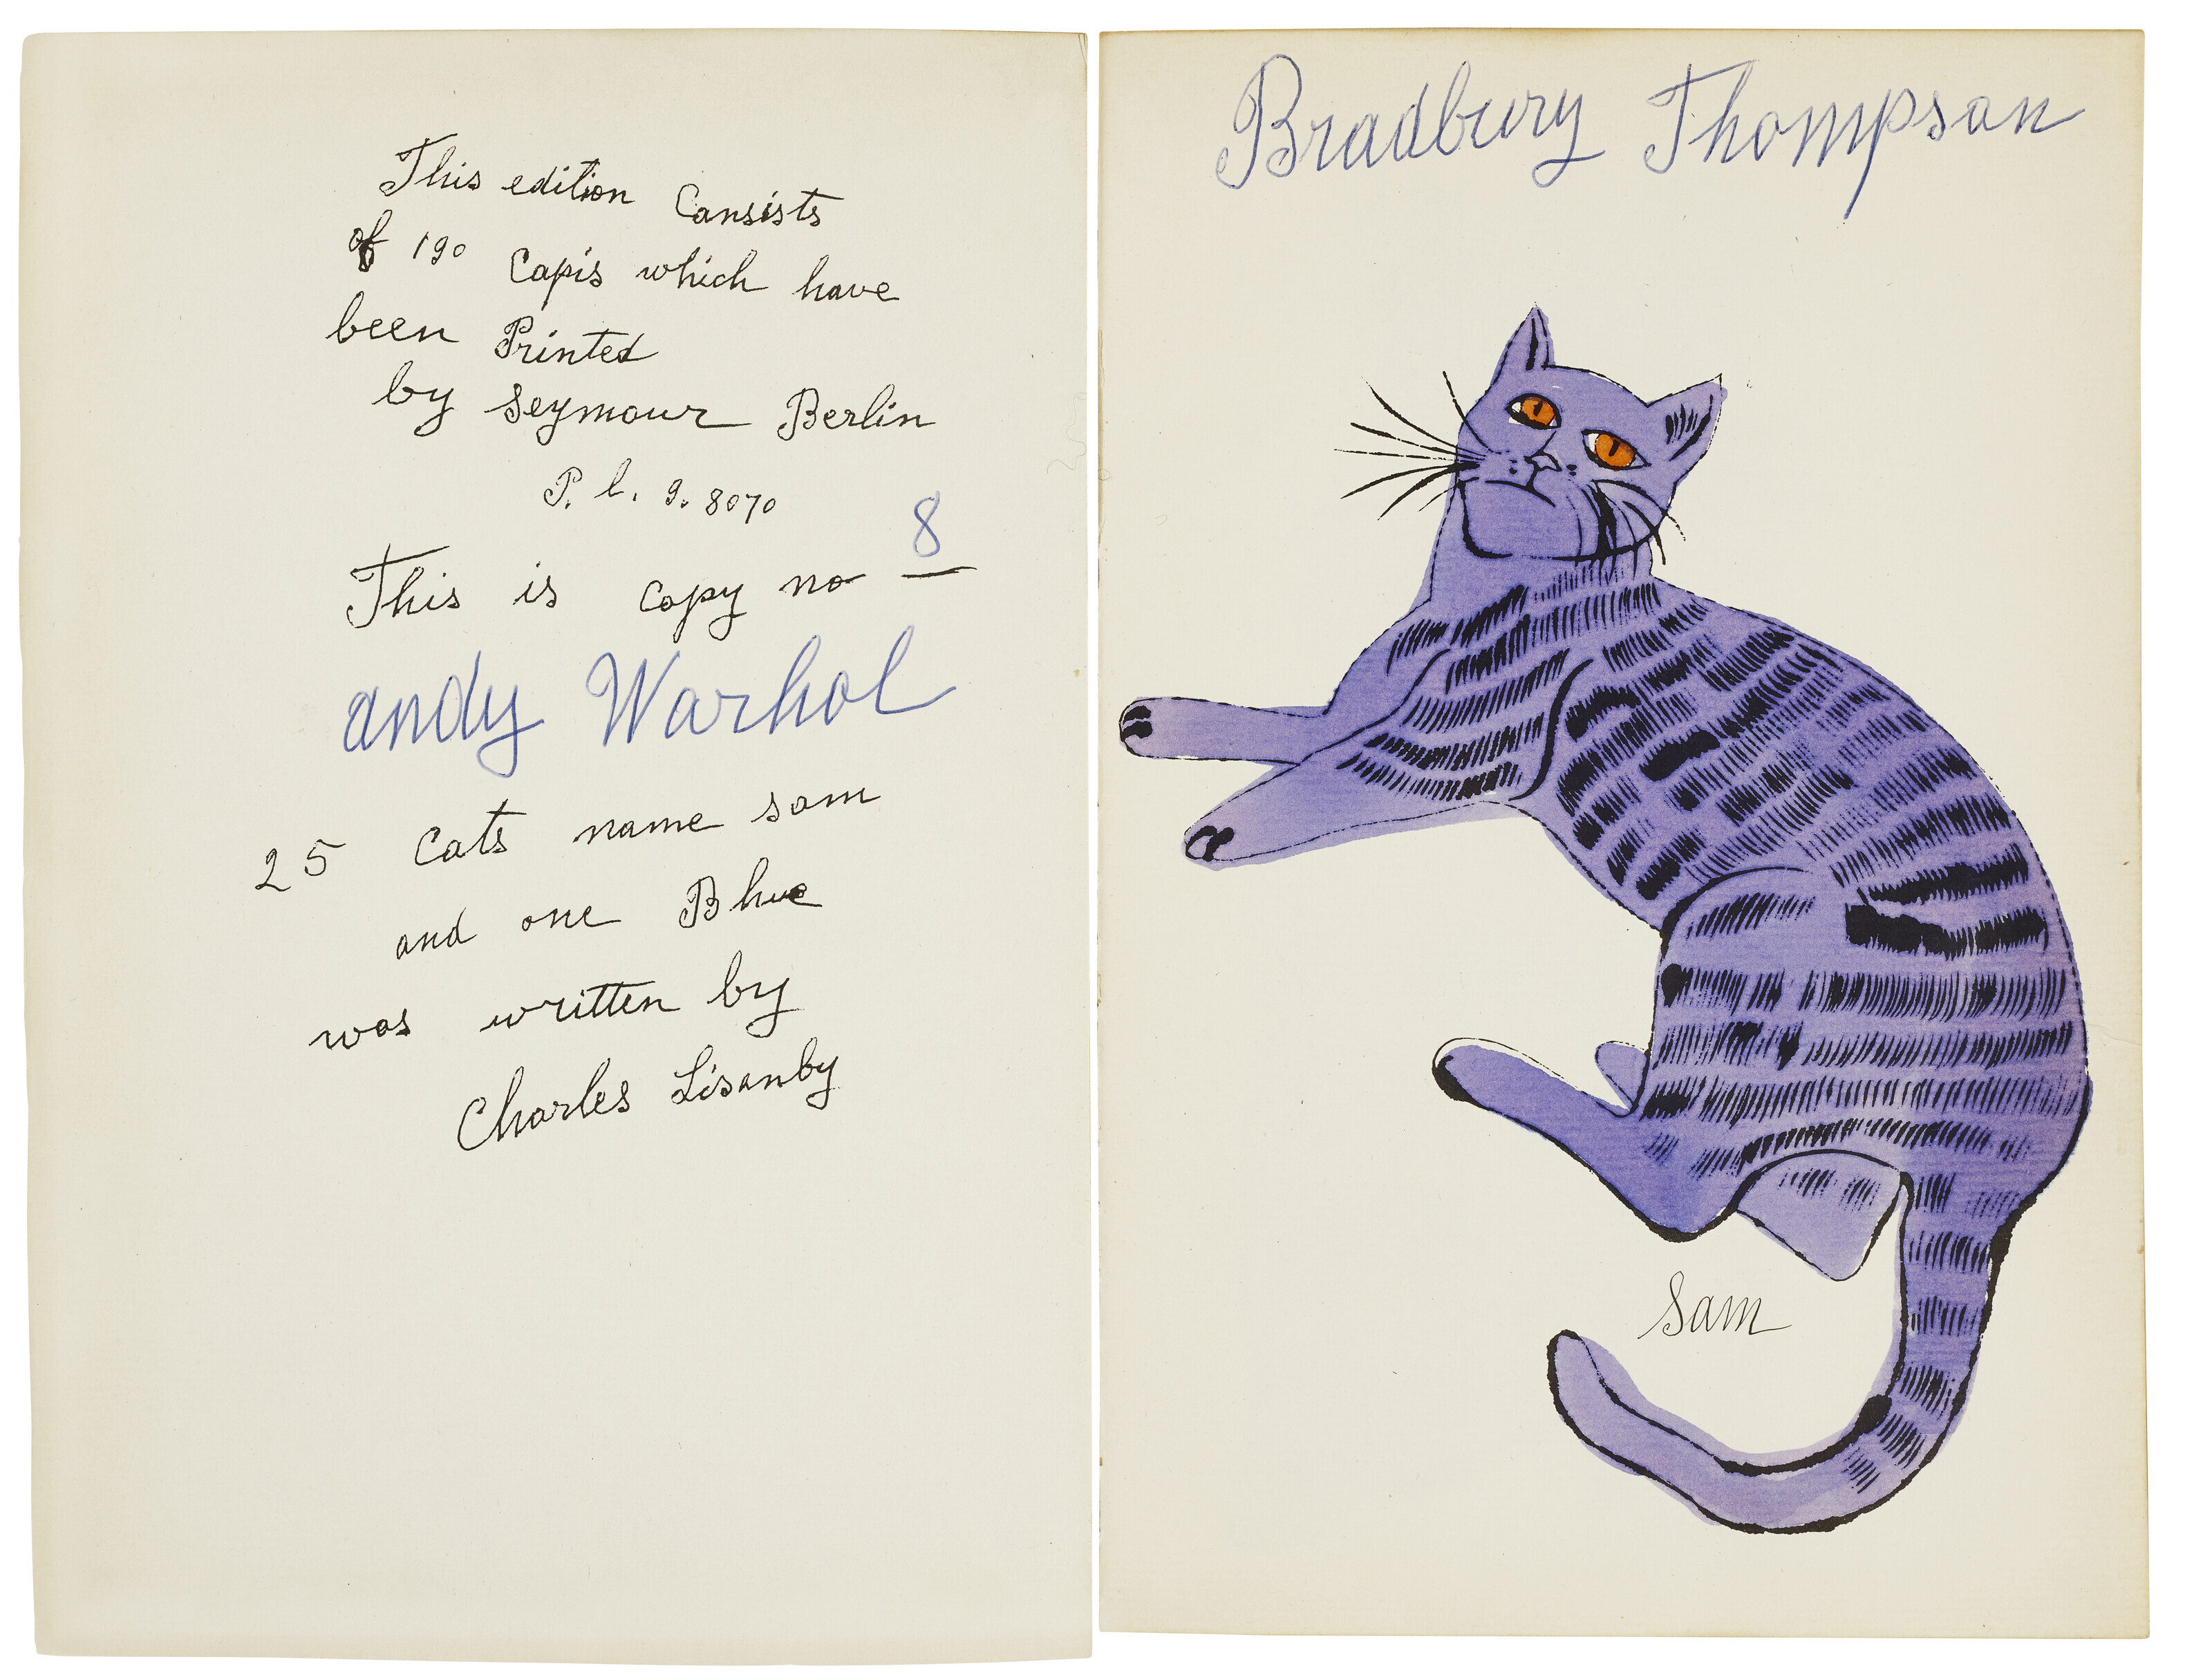 This edition Cansists
of 190 Capis which have
been Printed
by Seymour Berlin
P. l. 9. 8070
This is copy no 8
andy Warhol
25 Cats name sam
and one Blue
was written by
Charles Lisanby
Bradbury Thompson
Sam